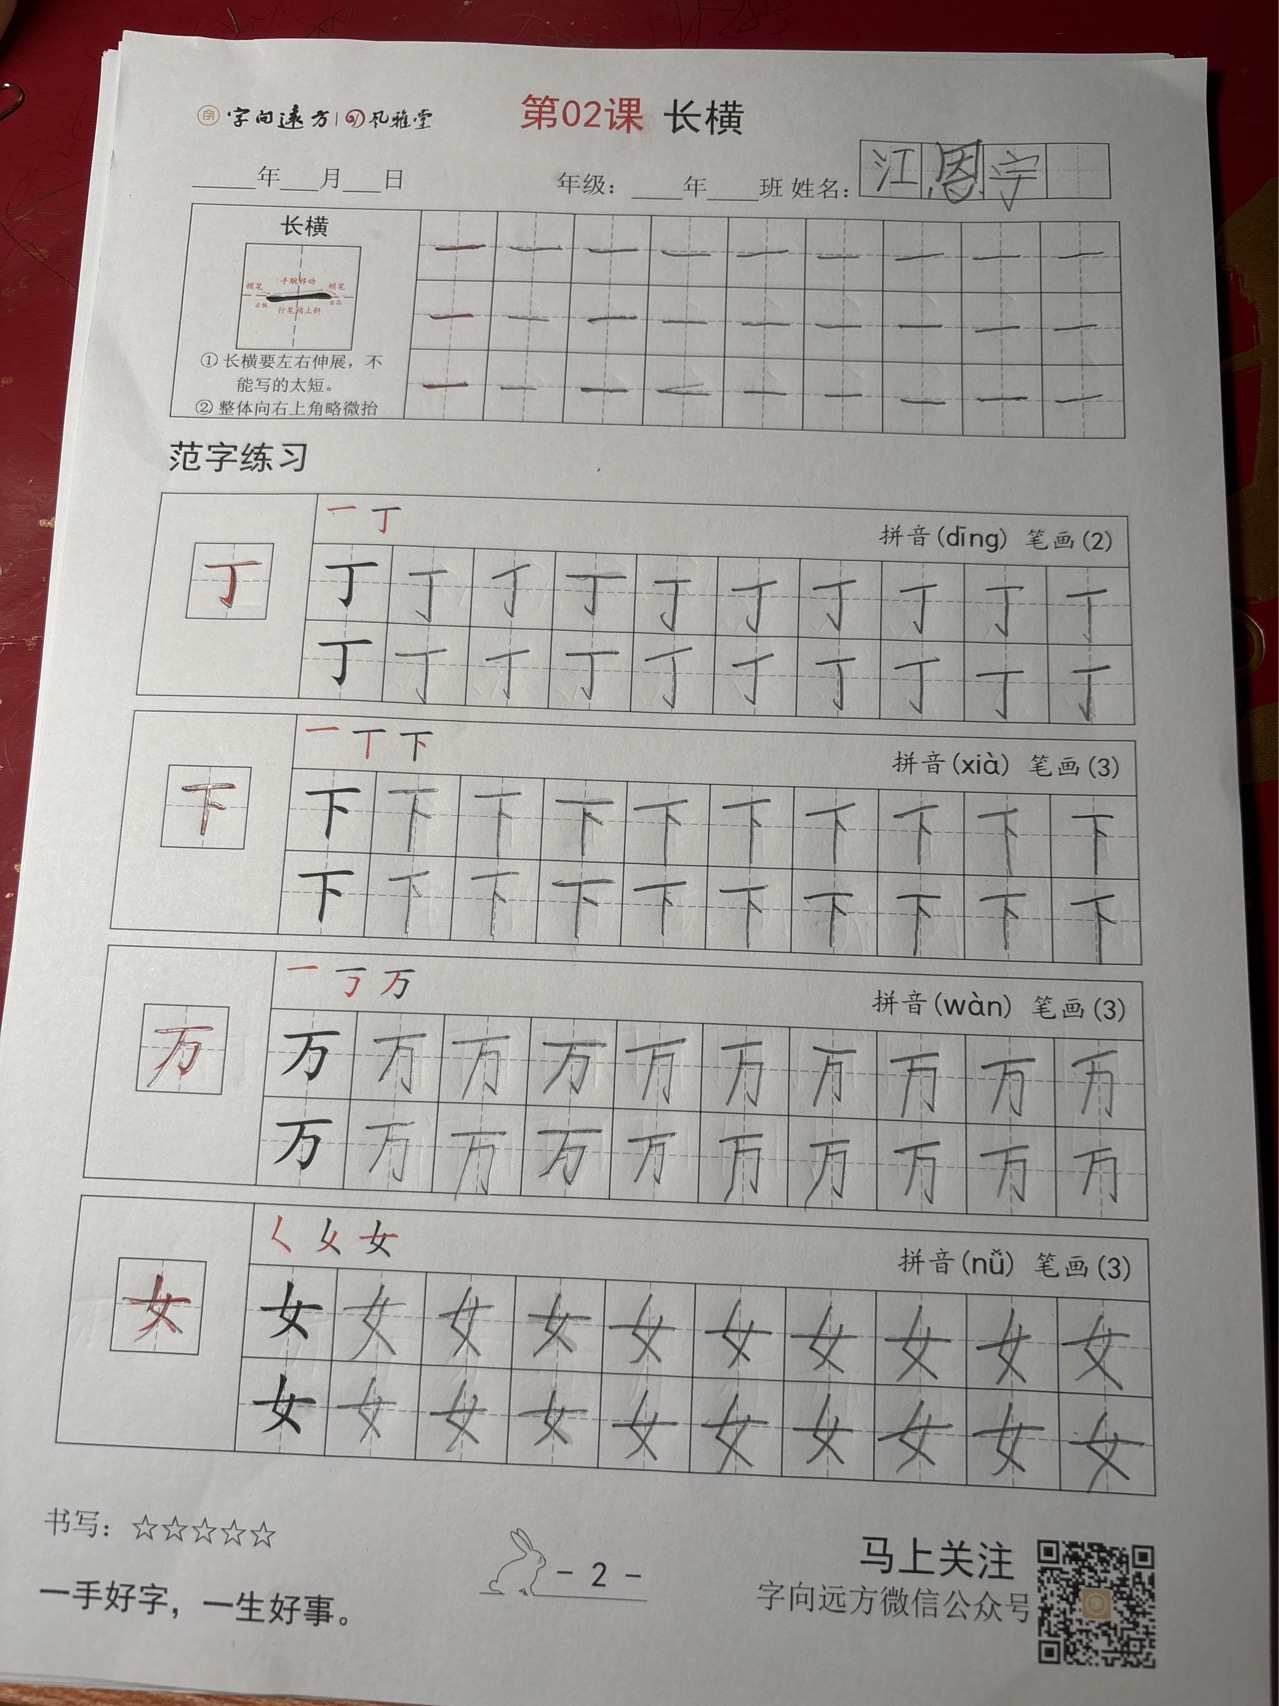 字向远方 | 风雅堂
第02课 长横
____年___月___日 年级：____年____班 姓名： 江恩宇
长横
顿笔 手腕移动 顿笔
行笔稍上斜
① 长横要左右伸展，不
能写的太短。
② 整体向右上角略微抬
一 一 一 一 一 一 一 一 一
一 一 一 一 一 一 一 一 一
一 一 一 一 一 一 一 一 一
范字练习
一 丁 拼音(dīng) 笔画(2)
丁
丁 丁 丁 丁 丁 丁 丁 丁 丁 丁
丁 丁 丁 丁 丁 丁 丁 丁 丁 丁
一 丅 下 拼音(xià) 笔画(3)
下
下 下 下 下 下 下 下 下 下 下
下 下 下 下 下 下 下 下 下 下
一 丂 万 拼音(wàn) 笔画(3)
万
万 万 万 万 万 万 万 万 万 万
万 万 万 万 万 万 万 万 万 万
𡿨 乂 女 拼音(nǚ) 笔画(3)
女
女 女 女 女 女 女 女 女 女 女
女 女 女 女 女 女 女 女 女 女
书写：☆☆☆☆☆
一手好字，一生好事。
- 2 -
马上关注
字向远方微信公众号